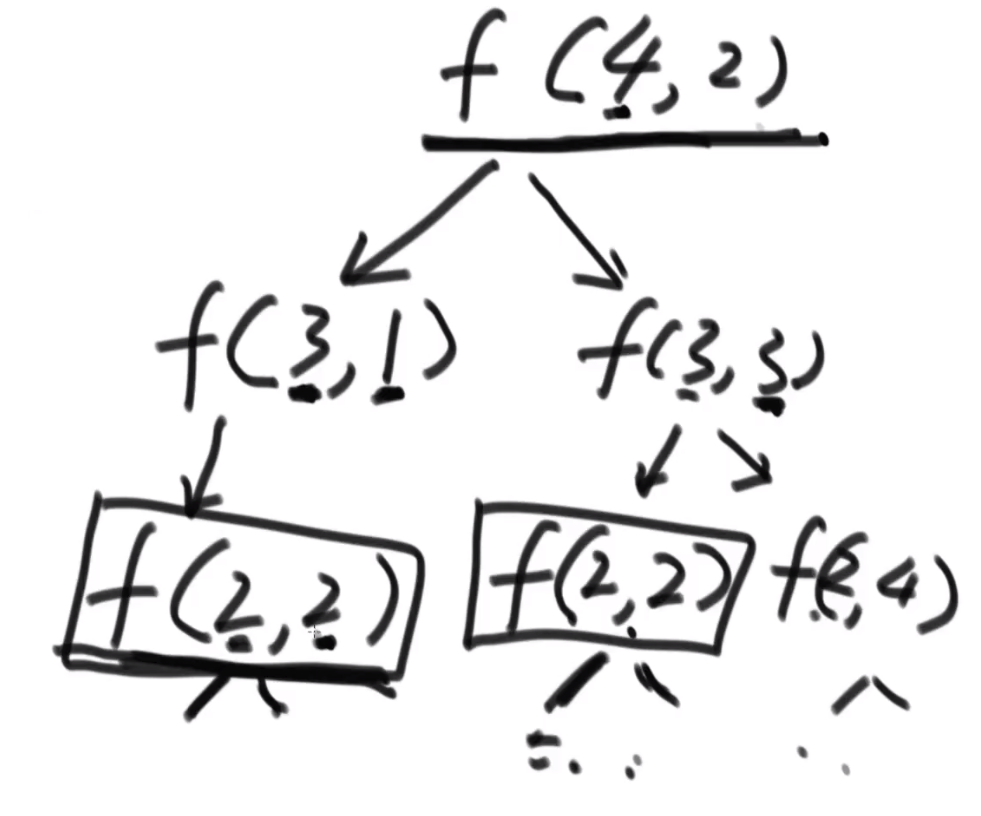 f (4, 2)
f(3, 1) f(3, 3)
f(2, 2) f(2, 2) f(2, 4)